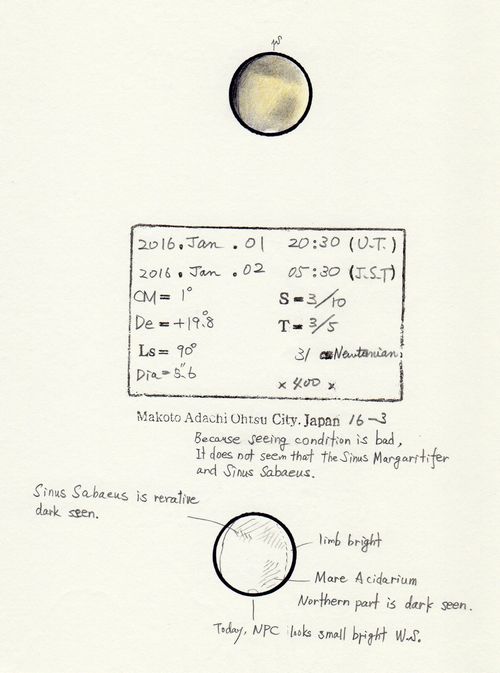 pS
2016. Jan. 01 20:30 (U.T.)
2016. Jan. 02 05:30 (J.S.T)
CM = 1° S = 3/10
De = +19.8° T = 3/5
Ls = 90° 31 Newtonian.
Dia = 5.″6 × 400 ×
Makoto Adachi Ohtsu City. Japan 16-3
Because seeing condition is bad,
It does not seem that the Sinus Margaritifer
and Sinus Sabaeus.
Sinus Sabaeus is rerative
dark seen.
limb bright
Mare Acidarium
Northern part is dark seen.
Today, NPC looks small bright W.S.